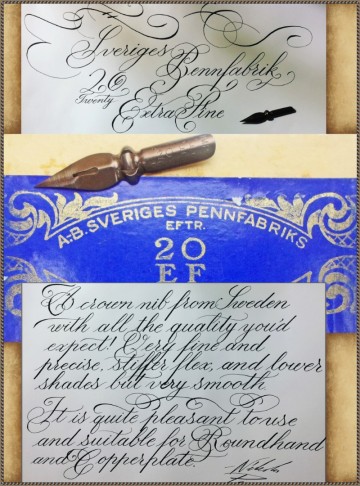 Sveriges
Pennfabrik
20 EF
Twenty
Extra Fine
A-B. SVERIGES PENNFABRIKS
EFTR.
20
EF
A crown nib from Sweden
with all the quality you'd
expect! Very fine and
precise, stiffer flex, and lower
shades but very smooth
It is quite pleasant to use
and suitable for Roundhand
and Copperplate.